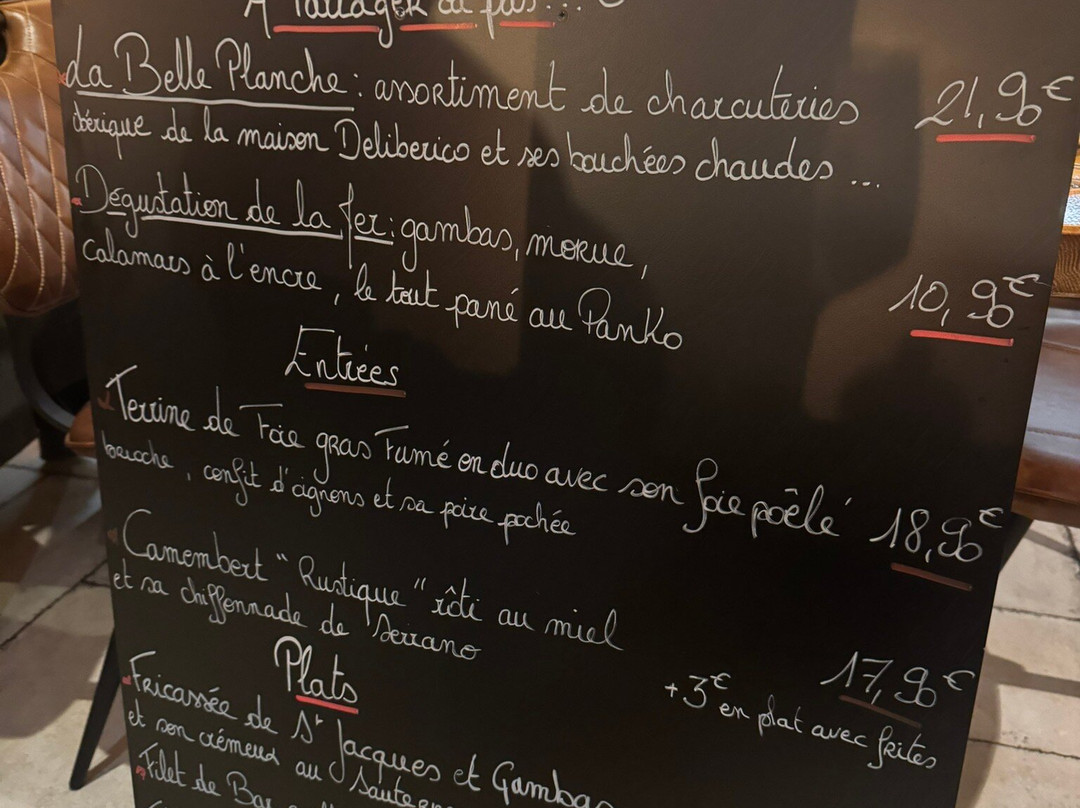 A Partager ou pas...
La Belle Planche : assortiment de charcuteries 21,90€
ibérique de la maison Deliberico et ses bouchées chaudes ...
Dégustation de la Mer : gambas, morue,
calamars à l'encre, le tout pané au Panko 10,90€
Entrées
Terrine de Foie gras Fumé en duo avec son foie poêlé 18,90€
brioche, confit d'oignons et sa poire pochée
Camembert "Rustique" rôti au miel
et sa chiffonnade de Serrano 17,90€
+3€ en plat avec frites
Plats
Fricassée de St Jacques et Gambas
et son crémeux au
Filet de Bar